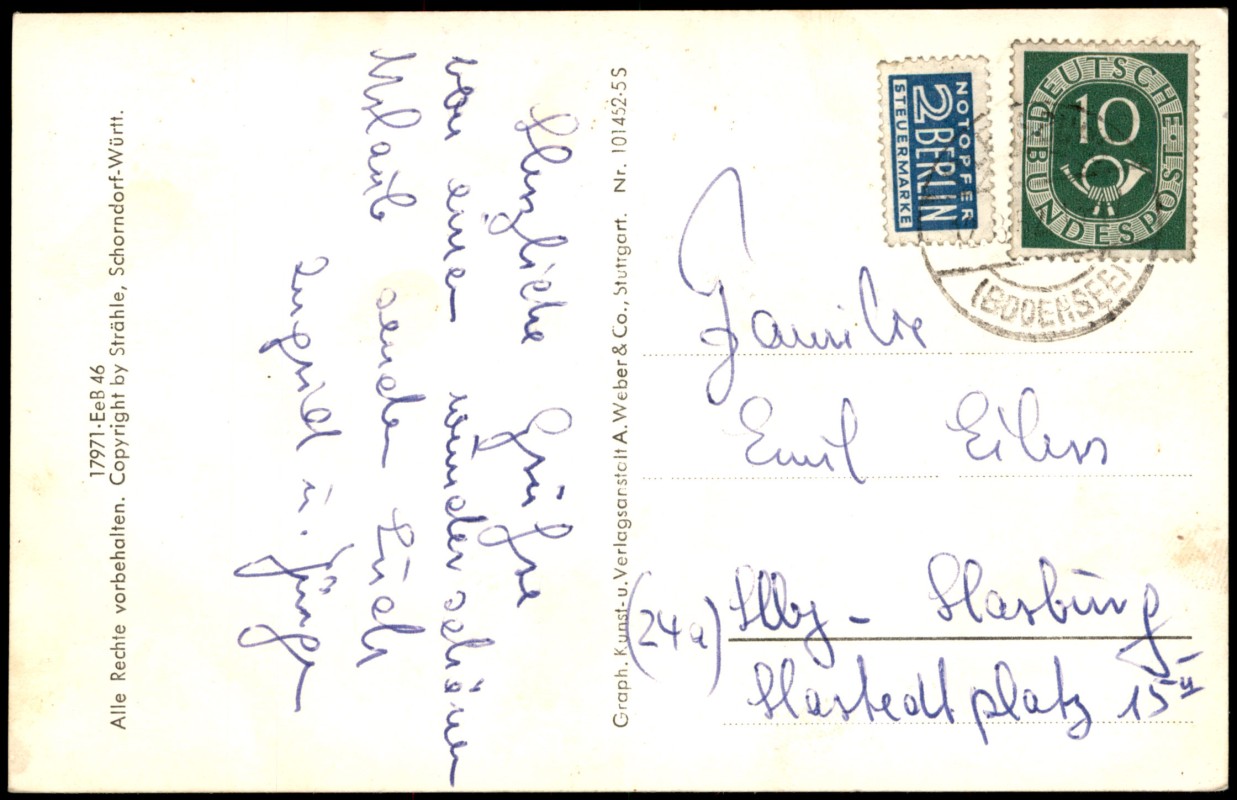 17971·EeB 46
Alle Rechte vorbehalten. Copyright by Strähle, Schorndorf-Württ.
Herzliche Grüße
von einem wunderschönen
Urlaub senden Euch
Ingrid u. Jürgen
Graph. Kunst- u. Verlagsanstalt A. Weber & Co., Stuttgart. Nr. 101452·5S
NOTOPFER
2 BERLIN
STEUERMARKE
DEUTSCHE
BUNDESPOST
10
(BODENSEE)
Familie
Emil Eilers
(24a) Hbg - Harburg
Hastedtplatz 15 II